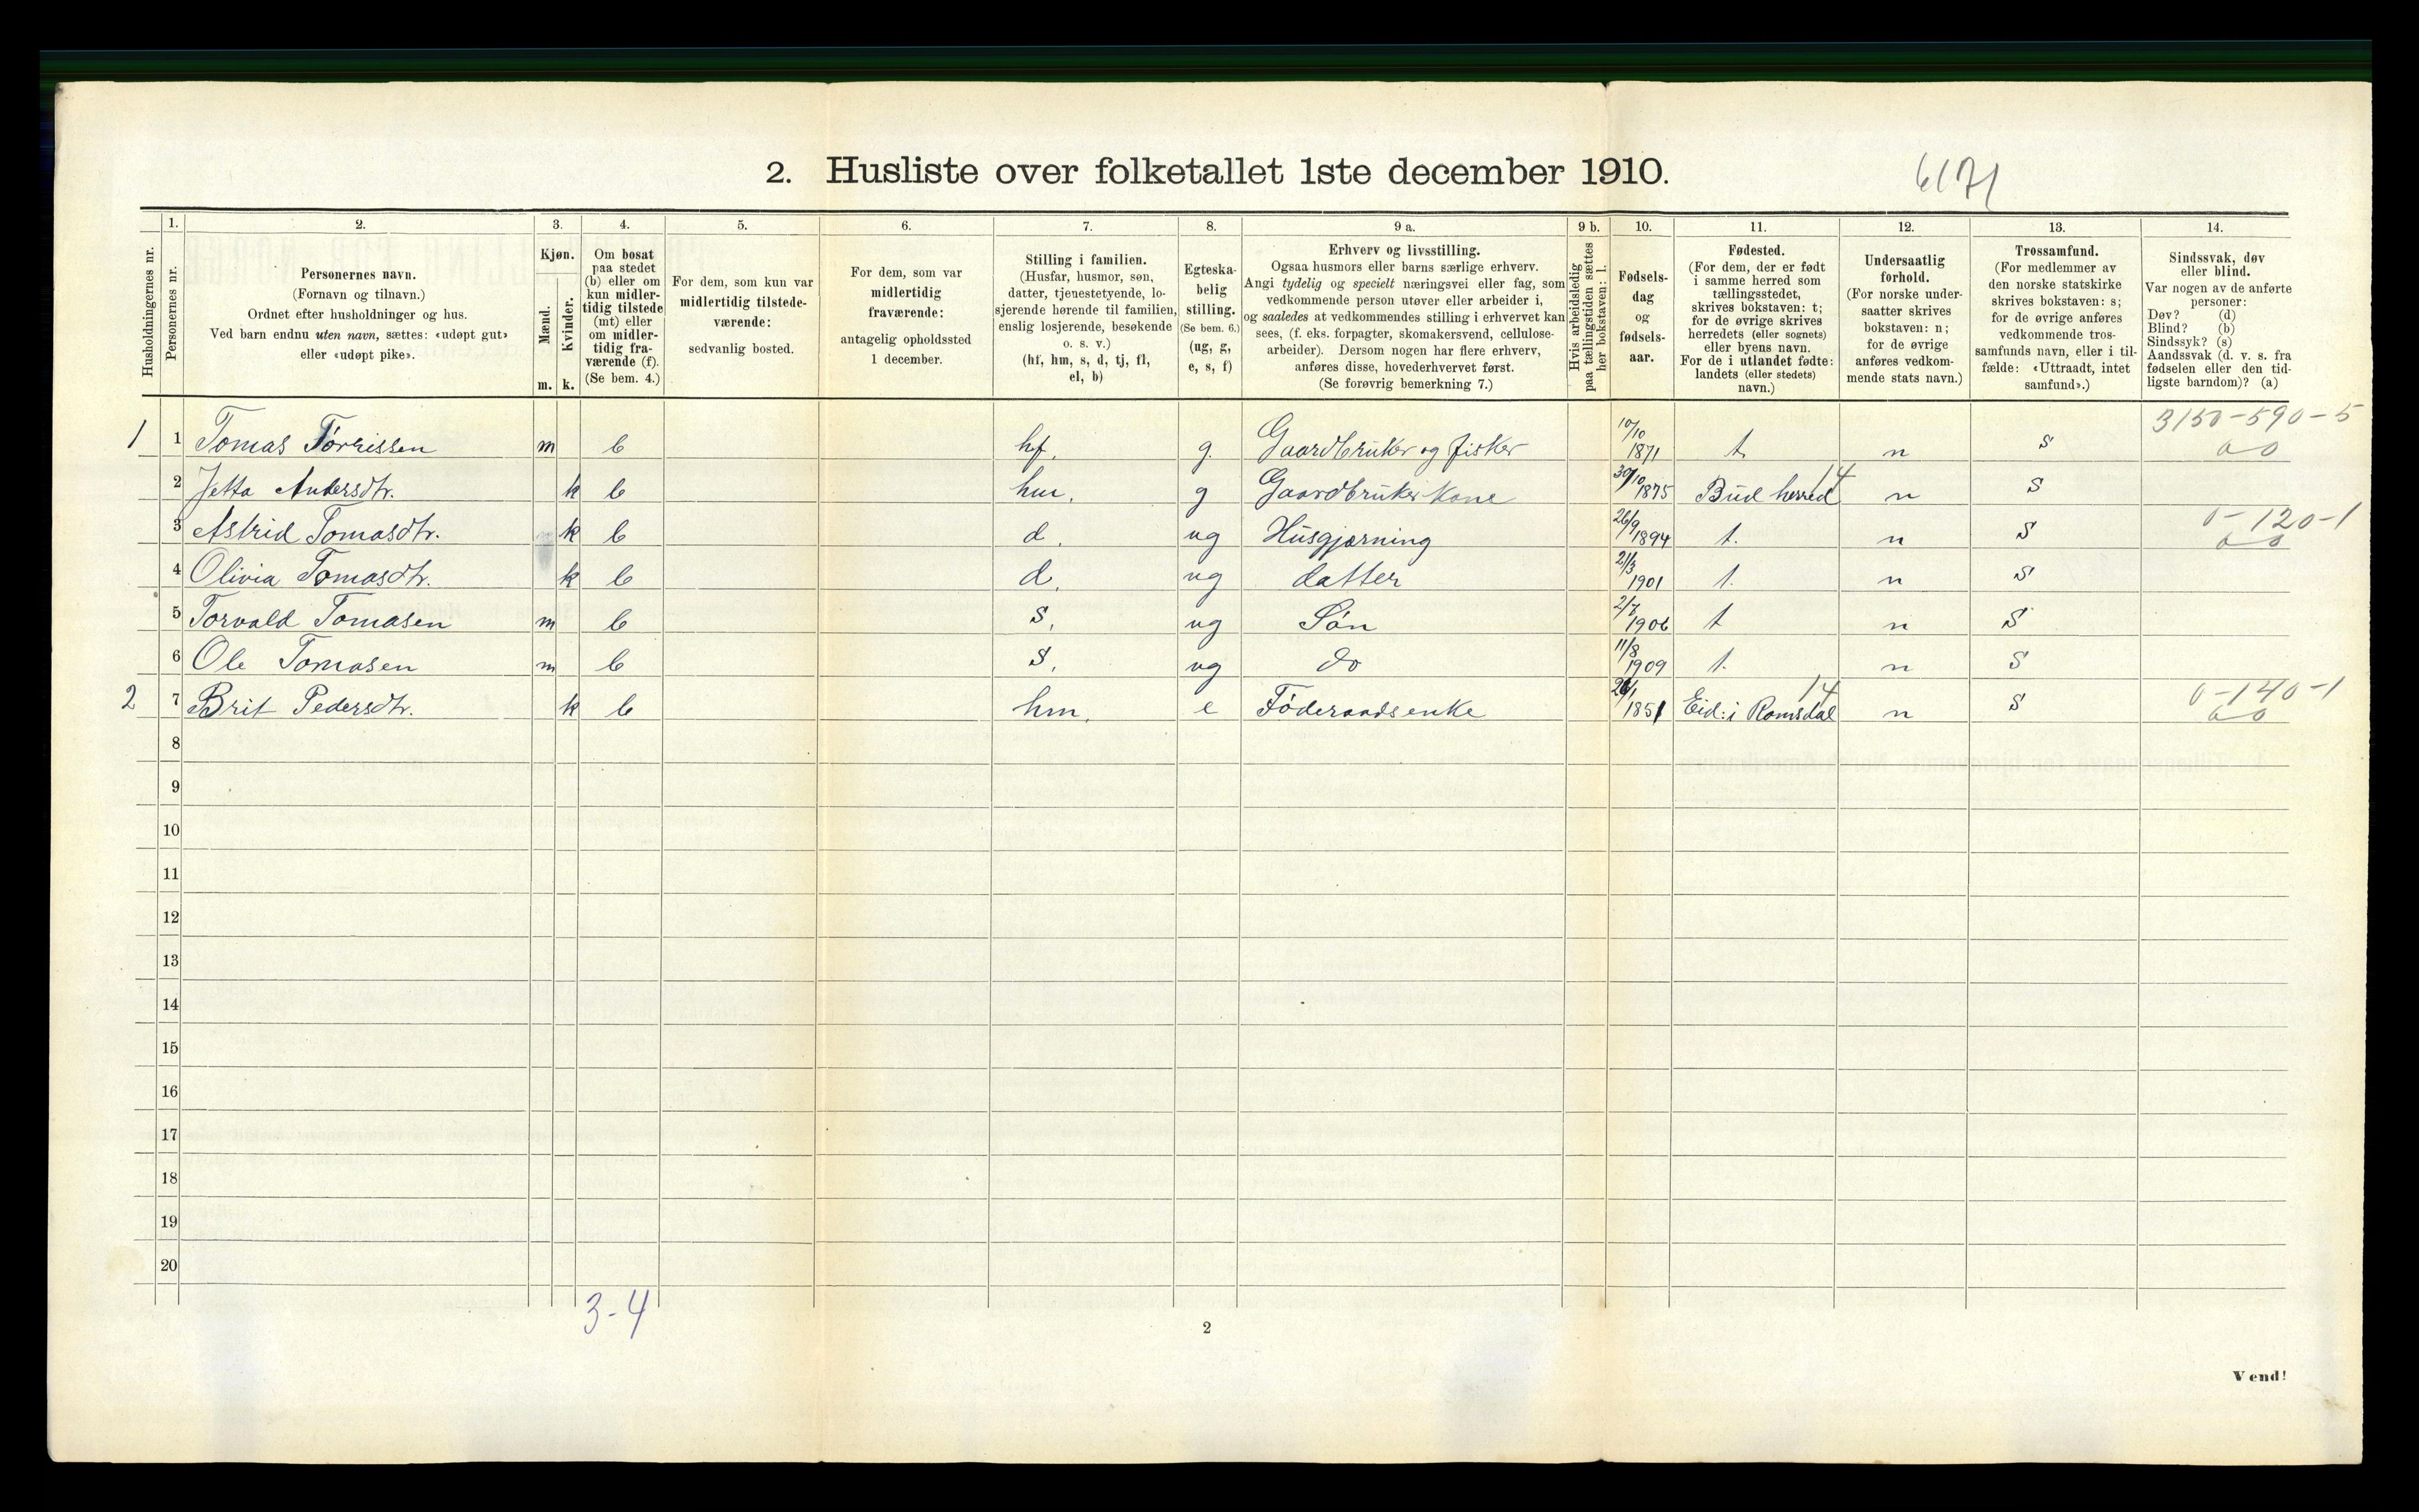 2. Husliste over folketallet 1ste december 1910.
6171
Husholdningernes nr.
1.
Personernes nr.
2.
Personernes navn.
(Fornavn og tilnavn.)
Ordnet efter husholdninger og hus.
Ved barn endnu uten navn, sættes: «udøpt gut»
eller «udøpt pike».
3.
Kjøn.
Mænd.
Kvinder.
m. k.
4.
Om bosat
paa stedet
(b) eller om
kun midler-
tidig tilstede
(mt) eller
om midler-
tidig fra-
værende (f).
(Se bem. 4.)
5.
For dem, som kun var
midlertidig tilstede-
værende:
sedvanlig bosted.
6.
For dem, som var
midlertidig
fraværende:
antagelig opholdssted
1 december.
7.
Stilling i familien.
(Husfar, husmor, søn,
datter, tjenestetyende, lo-
sjerende hørende til familien,
enslig losjerende, besøkende
o. s. v.)
(hf, hm, s, d, tj, fl,
el, b)
8.
Egteska-
belig
stilling.
(Se bem. 6.)
(ug, g,
e, s, f)
9 a.
Erhverv og livsstilling.
Ogsaa husmors eller barns særlige erhverv.
Angi tydelig og specielt næringsvei eller fag, som
vedkommende person utøver eller arbeider i,
og saaledes at vedkommendes stilling i erhvervet kan
sees, (f. eks. forpagter, skomakersvend, cellulose-
arbeider). Dersom nogen har flere erhverv,
anføres disse, hovederhvervet først.
(Se forøvrig bemerkning 7.)
9 b.
Hvis arbeidsledig
paa tællingstiden sættes
her bokstaven: l.
10.
Fødsels-
dag
og
fødsels-
aar.
11.
Fødested.
(For dem, der er født
i samme herred som
tællingsstedet,
skrives bokstaven: t;
for de øvrige skrives
herredets (eller sognets)
eller byens navn.
For de i utlandet fødte:
landets (eller stedets)
navn.)
12.
Undersaatlig
forhold.
(For norske under-
saatter skrives
bokstaven: n;
for de øvrige
anføres vedkom-
mende stats navn.)
13.
Trossamfund.
(For medlemmer av
den norske statskirke
skrives bokstaven: s;
for de øvrige anføres
vedkommende tros-
samfunds navn, eller i til-
fælde: «Uttraadt, intet
samfund».)
14.
Sindssvak, døv
eller blind.
Var nogen av de anførte
personer:
Døv? (d)
Blind? (b)
Sindssyk? (s)
Aandssvak (d. v. s. fra
fødselen eller den tid-
ligste barndom)? (a)
3150-590-5
1 1 Tomas Tørrissen m b hf. g. Gaardbruker og fisker 10/10 1871 t. n s 00
2 Jetta Andersdtr. k b hm. g Gaardbruker Kone 30/10 1875 Bud herred 14 n s
0-120-1
3 Astrid Tomasdtr. k b d. ug Husgjærning 26/9 1894 t. n s 00
4 Olivia Tomasdtr. k b d. ug datter 21/3 1901 t. n s
5 Torvald Tomasen m b s. ug Søn 2/7 1906 t n s
6 Ole Tomasen m b s. ug do 11/8 1909 t. n s
0-140-1
2 7 Brit Pedersdtr. k b hm. e Føderaadsenke 26/1 1851 Eid: i Romsdal 14 n s 00
8
9
10
11
12
13
14
15
16
17
18
19
20
3-4
2
Vend!